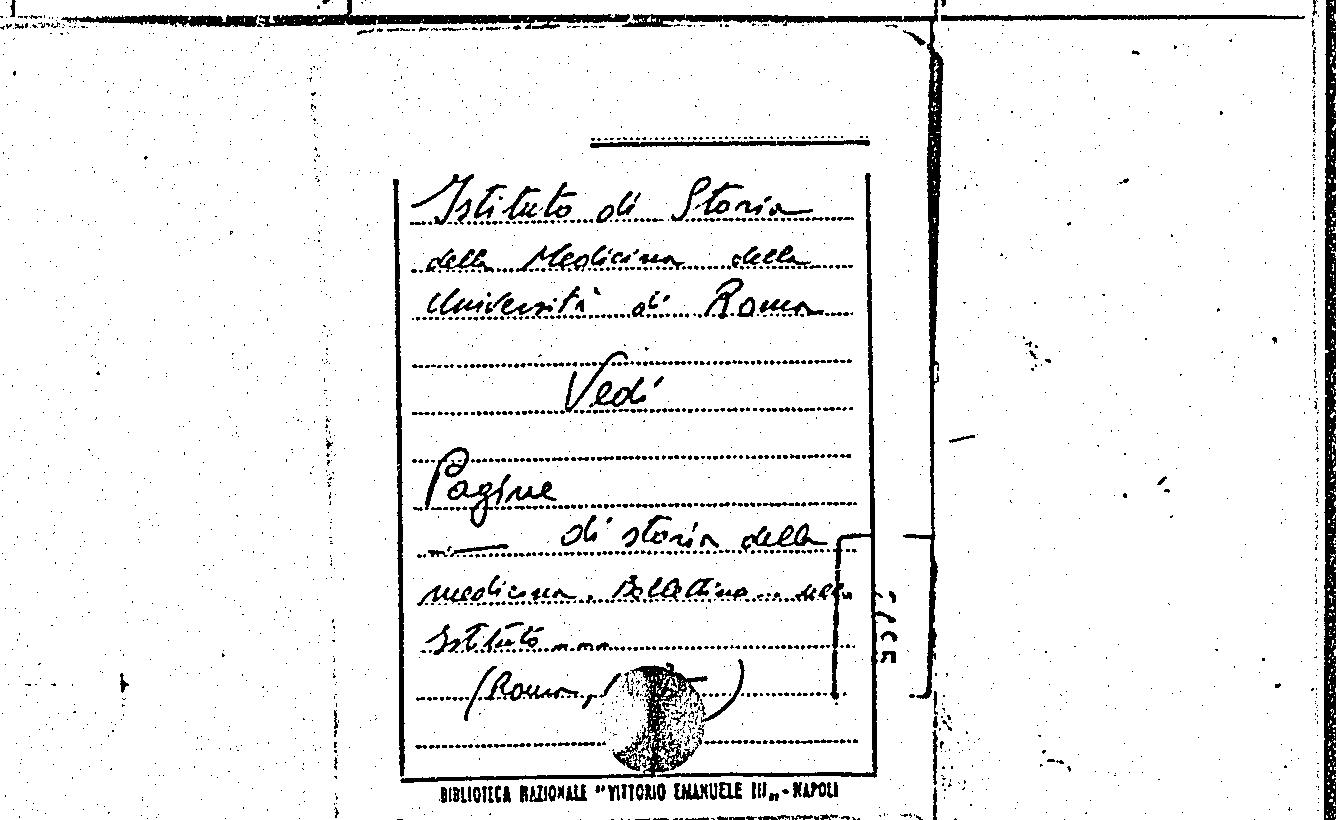 Istituto di Storia
della Medicina della
Università di Roma
Vedi
Pagine
di storia della
medicina. Bollettino... dell'
Istituto....
(Roma, )
BIBLIOTECA NAZIONALE "VITTORIO EMANUELE III„ - NAPOLI